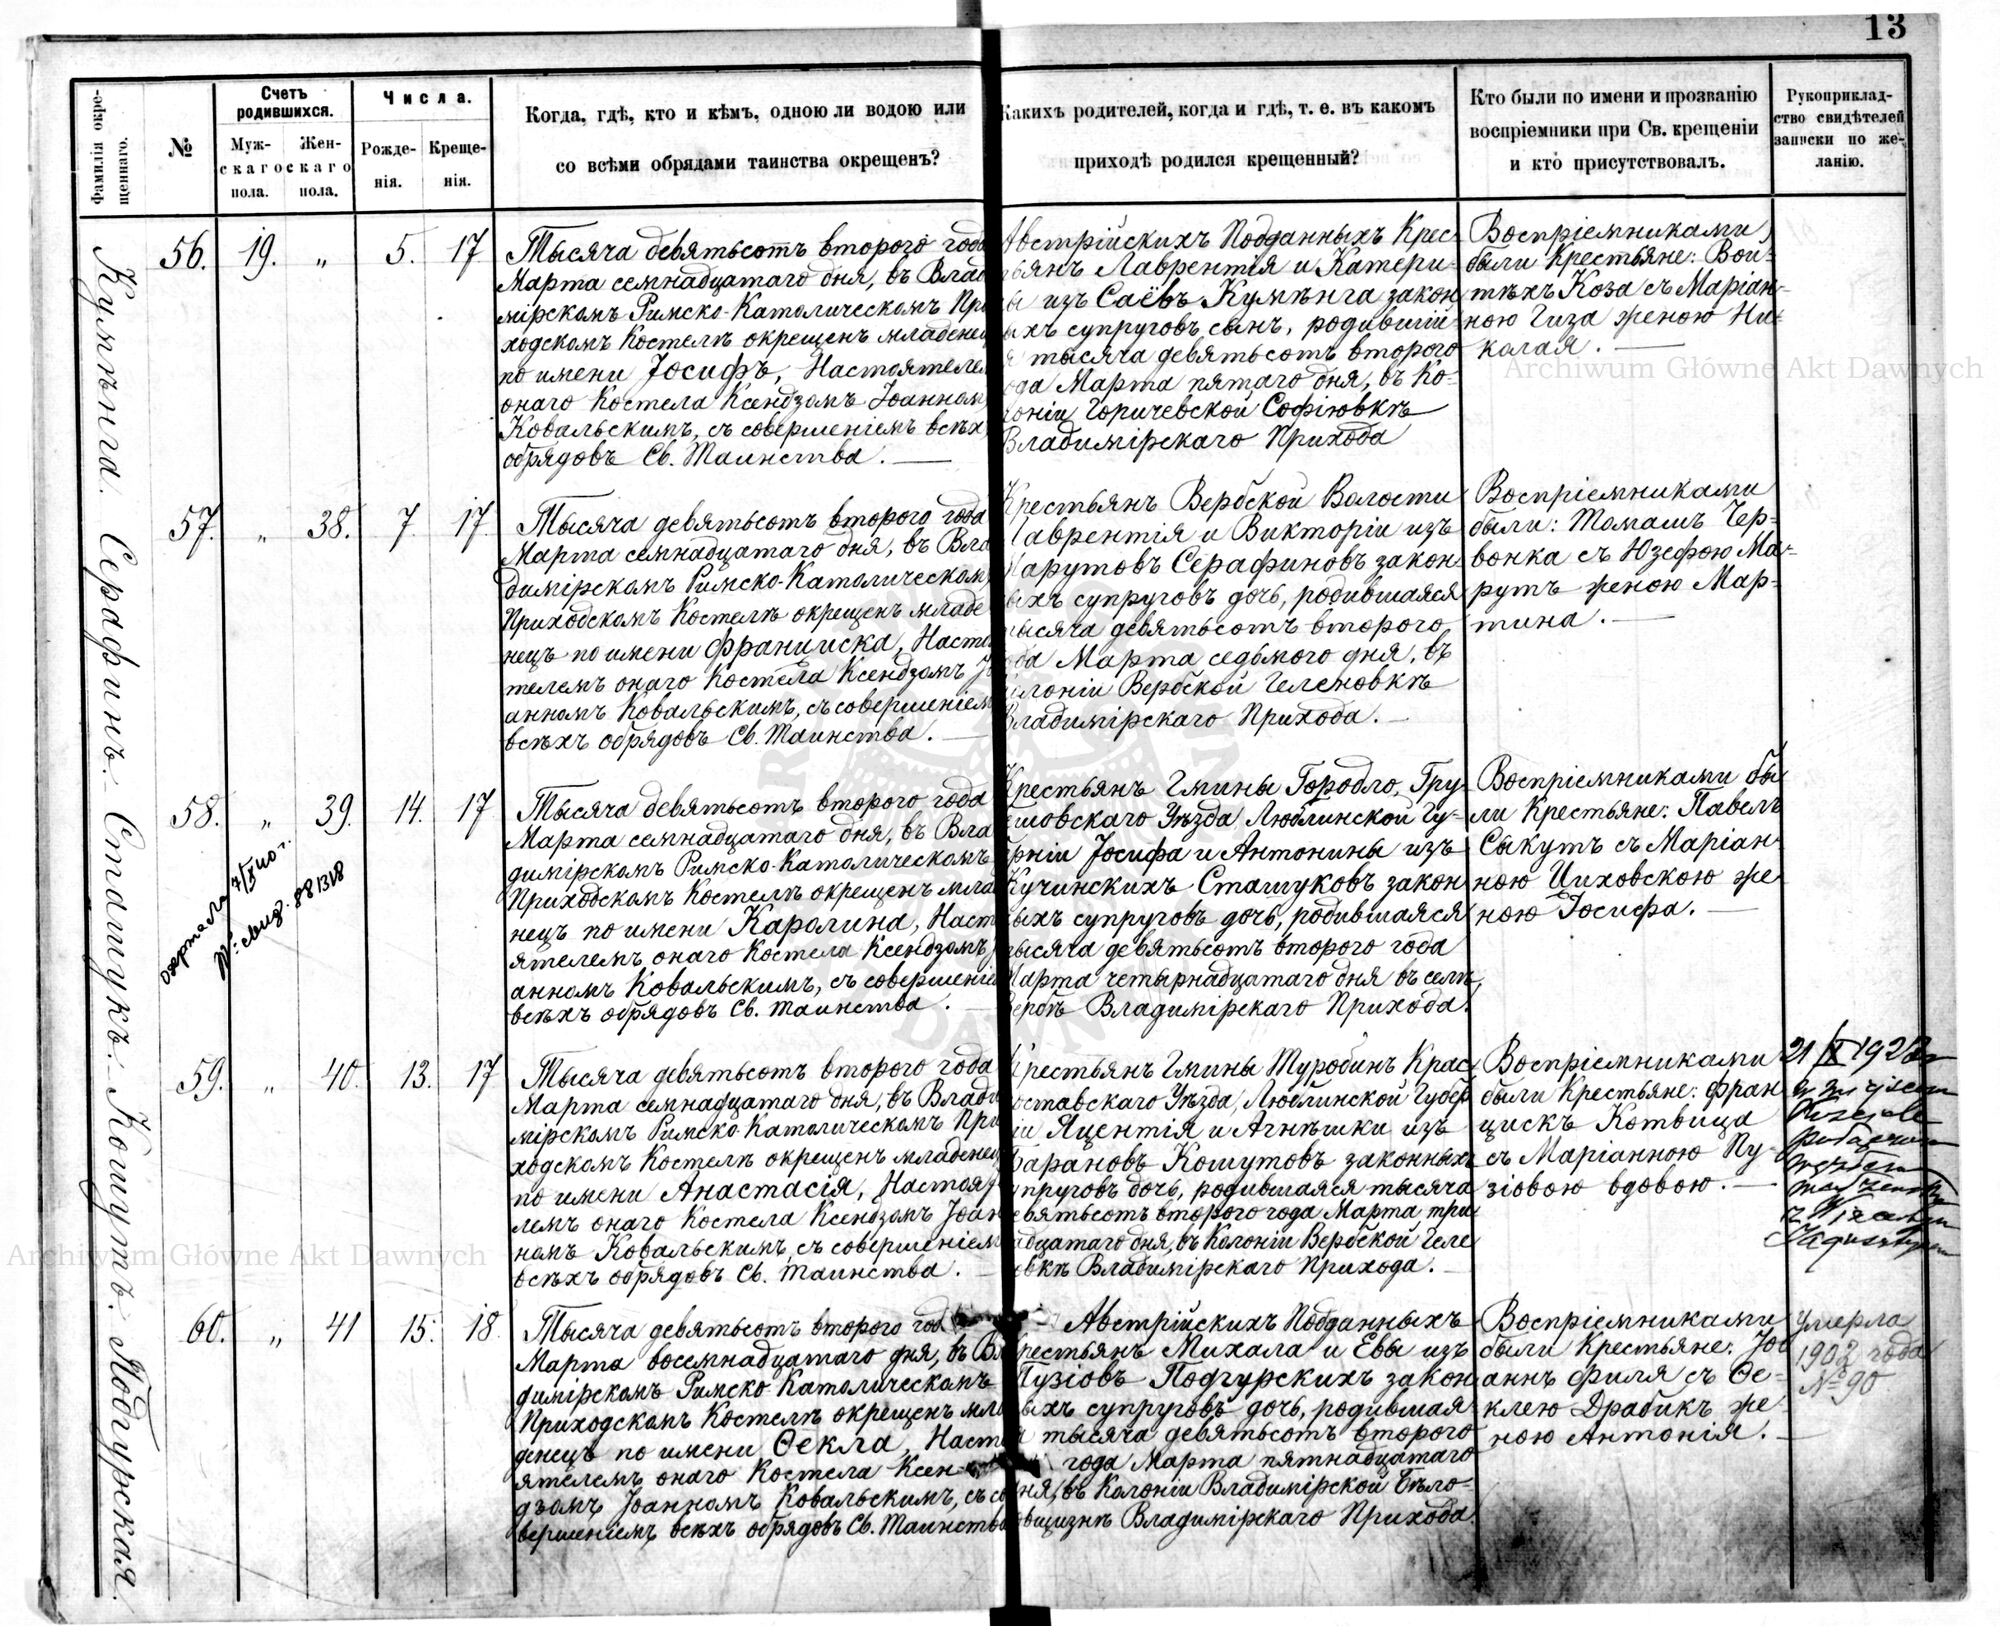 13
Фамилія окре-
щеннаго.
№
Счетъ
родившихся.
Муж-
скаго
пола.
Жен-
скаго
пола.
Числа.
Рожде-
нія.
Креще-
нія.
Когда, гдѣ, кто и кѣмъ, одною ли водою или
со всѣми обрядами таинства окрещенъ?
Какихъ родителей, когда и гдѣ, т. е. въ какомъ
приходѣ родился крещенный?
Кто были по имени и прозванію
воспріемники при Св. крещеніи
и кто присутствовалъ.
Рукоприклад-
ство свидѣтелей
записки по же-
ланію.
Кумѣнга. Серафинъ. Сташукъ. Кошутъ. Подгурская.
56. 19. „ 5. 17
Тысяча девятьсотъ второго года
Марта семнадцатаго дня, въ Влад
мірскомъ Римско-Католическомъ При
ходскомъ Костелѣ окрещенъ младенец
по имени Іосифъ, Настоятелем
онаго Костела Ксендзомъ Іоанном
Ковальскимъ, съ совершеніемъ всѣхъ
обрядовъ Св. Таинства.
Австрійскихъ Подданныхъ Крес-
ьянъ Лаврентія и Катери-
ы изъ Саёвъ Кумѣнга закон
ыхъ супруговъ сынъ, родившій
я тысяча девятьсотъ второго
ода Марта пятаго дня, въ Ко-
оніи Горичевской Софіювкѣ
Владимірскаго Прихода
Воспріемниками
были Крестьяне: Вой-
тѣхъ Коза съ Маріан-
ною Гиза женою Ни-
колая.
57. „ 38. 7. 17.
Тысяча девятьсотъ второго года
Марта семнадцатаго дня, въ Вла
димірскомъ Римско-Католическом
Приходскомъ Костелѣ окрещенъ младе
нецъ по имени Франциска, Насто
телемъ онаго Костела Ксендзомъ І
анномъ Ковальскимъ, съ совершеніем
всѣхъ обрядовъ Св. Таинства.
Крестьянъ Вербской Волости
Лаврентія и Викторіи изъ
Марутовъ Серафиновъ закон
ыхъ супруговъ дочь, родившаяся
тысяча девятьсотъ второго
ода Марта седьмого дня, въ
олоніи Вербской Геленовкѣ
Владимірскаго Прихода.
Воспріемниками
были: Томашъ Чер-
вонка съ Юзефою Ма-
рутъ женою Мар-
тина.
58. „ 39. 14. 17
Тысяча девятьсотъ второго года
Марта семнадцатаго дня, въ Вла
димірскомъ Римско-Католическомъ
Приходскомъ Костелѣ окрещенъ млад
нецъ по имени Каролина, Наст
ятелемъ онаго Костела Ксендзомъ
анномъ Ковальскимъ, съ совершеніе
всѣхъ обрядовъ Св. Таинства.
Крестьянъ Гмины Городло, Гру-
ешовскаго Уѣзда Люблинской Гу-
ерніи Іосифа и Антонины изъ
Кучинскихъ Сташуковъ закон
ыхъ супруговъ дочь, родившаяся
тысяча девятьсотъ второго года
Марта четырнадцатаго дня въ селѣ
Вербѣ Владимірскаго Прихода.
Воспріемниками бы
ли Крестьяне: Павелъ
Сыкутъ съ Маріан-
ною Циховскою же
ною Іосифа.
59. „ 40. 13. 17
Тысяча девятьсотъ второго года
Марта семнадцатаго дня, въ Влади
мірскомъ Римско-Католическомъ При
ходскомъ Костелѣ окрещенъ младенец
по имени Анастасія, Настоят
лемъ онаго Костела Ксендзомъ Іоан
номъ Ковальскимъ, съ совершеніем
всѣхъ обрядовъ Св. Таинства.
Крестьянъ Гмины Туробинъ Крас
оставскаго Уѣзда, Люблинской Губер
іи Яцентія и Агнѣшки изъ
Барановъ Кошутовъ законныхъ
упруговъ дочь, родившаяся тысяча
евятьсотъ второго года Марта три
адцатаго дня, въ Колоніи Вербской Геле
овкѣ Владимірскаго Прихода.
Воспріемниками
были Крестьяне: Фран
цискъ Котвица
съ Маріанною Пу-
зіовою вдовою.
60. „ 41 15. 18
Тысяча девятьсотъ второго год
Марта восемнадцатаго дня, въ Вл
димірскомъ Римско-Католическомъ
Приходскомъ Костелѣ окрещенъ мла
денецъ по имени Ѳекла, Насто
ятелемъ онаго Костела Ксен
дзомъ Іоанномъ Ковальскимъ, съ со
вершеніемъ всѣхъ обрядовъ Св. Таинства
Австрійскихъ Подданныхъ
рестьянъ Михала и Евы изъ
Пузіовъ Подгурскихъ закон
ыхъ супруговъ дочь, родившая
я тысяча девятьсотъ второго
года Марта пятнадцатаго
ня, въ Колоніи Владимірской Бѣло-
овщизнѣ Владимірскаго Прихода.
Воспріемниками
были Крестьяне: Іоа
аннъ Филя съ Ѳе-
клею Драбикъ же-
ною Антонія.
Умерла
1902 года
№ 90
Archiwum Główne Akt Dawnych
Archiwum Główne Akt Dawnych